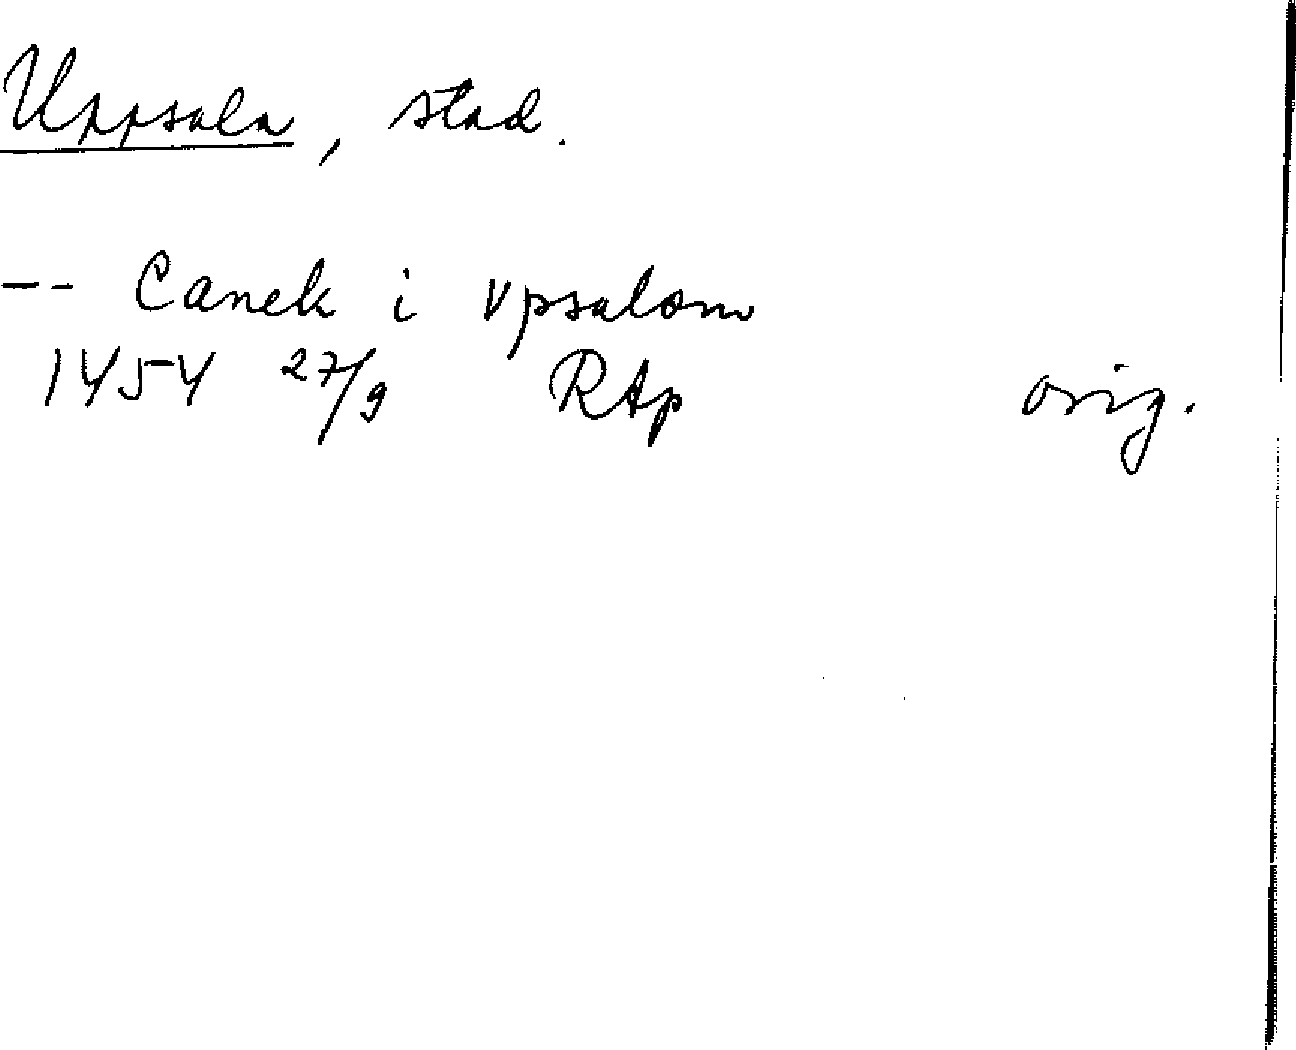 Uppsala, stad.
-- Canek i vpsalom
1454 27/9 RAp orig.